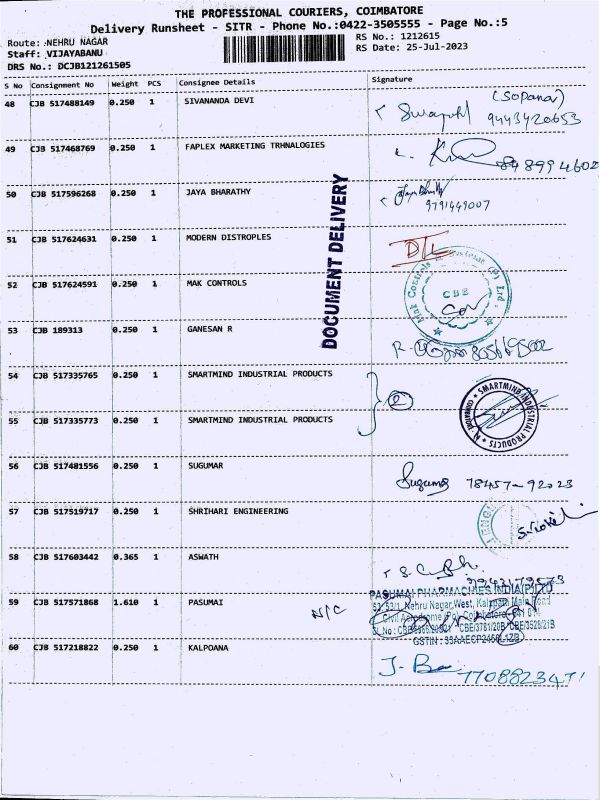 THE PROFESSIONAL COURIERS, COIMBATORE
Delivery Runsheet - SITR - Phone No.:0422-3505555 - Page No.:5
Route: NEHRU NAGAR
Staff: VIJAYABANU
DRS No.: DCJB121261505
RS No.: 1212615
RS Date: 25-Jul-2023
S No Consignment No Weight PCS Consignee Details Signature
48 CJB 517488149 0.250 1 SIVANANDA DEVI (Sopana)
9443420653
49 CJB 517468769 0.250 1 FAPLEX MARKETING TRHNALOGIES
50 CJB 517596268 0.250 1 JAYA BHARATHY
9791449007
DOCUMENT DELIVERY
51 CJB 517624631 0.250 1 MODERN DISTROPLES D/L
52 CJB 517624591 0.250 1 MAK CONTROLS
CBE
53 CJB 189313 0.250 1 GANESAN R
54 CJB 517335765 0.250 1 SMARTMIND INDUSTRIAL PRODUCTS 2
SMARTMIND INDUSTRIAL PRODUCTS
55 CJB 517335773 0.250 1 SMARTMIND INDUSTRIAL PRODUCTS
56 CJB 517481556 0.250 1 SUGUMAR
78457-92023
57 CJB 517519717 0.250 1 SHRIHARI ENGINEERING
58 CJB 517603442 0.365 1 ASWATH
59 CJB 517571868 1.610 1 PASUMAI N/C
PASUMAI PHARMACHIES INDIA(P)LTD
53,53/1, Nehru Nagar West, Kalapatti Main Road
60 CJB 517218822 0.250 1 KALPOANA
7708823471